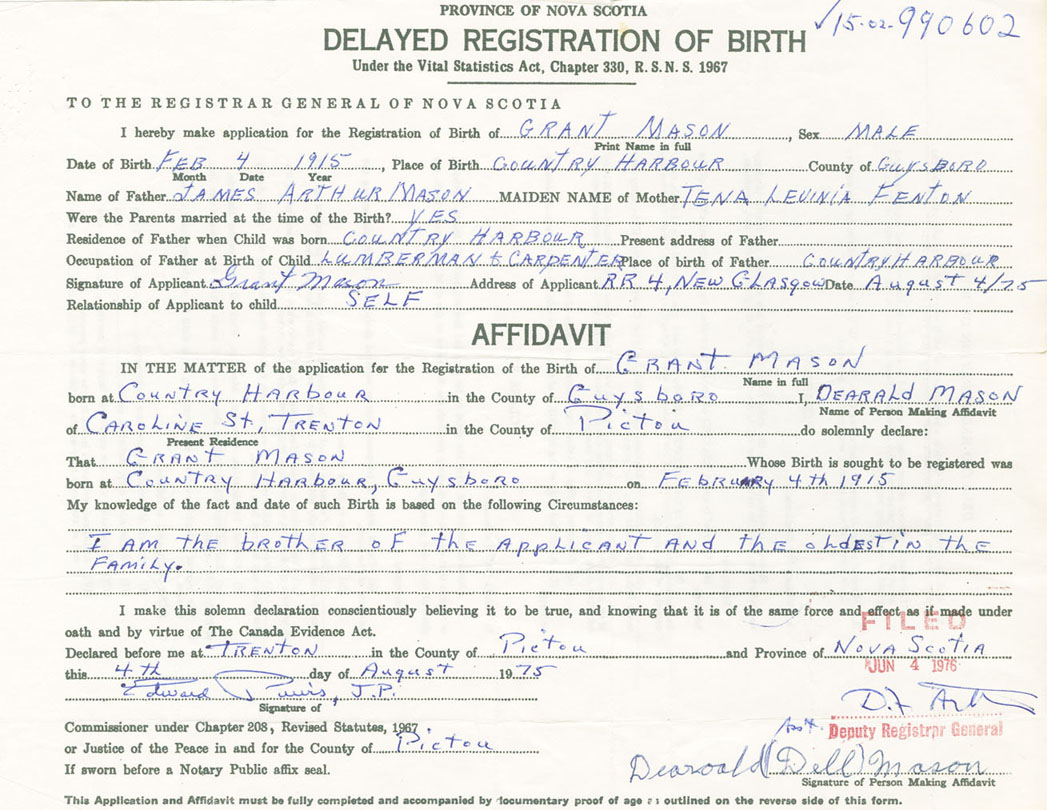 PROVINCE OF NOVA SCOTIA
✓15-02-990602
DELAYED REGISTRATION OF BIRTH
Under the Vital Statistics Act, Chapter 330, R. S. N. S. 1967
TO THE REGISTRAR GENERAL OF NOVA SCOTIA
I hereby make application for the Registration of Birth of GRANT MASON, Sex MALE
Print Name in full
Date of Birth FEB 4 1915, Place of Birth COUNTRY HARBOUR County of GUYSBORO
Month Date Year
Name of Father JAMES ARTHUR MASON MAIDEN NAME of Mother TENA LEVINIA FENTON
Were the Parents married at the time of the Birth? YES
Residence of Father when Child was born COUNTRY HARBOUR Present address of Father
Occupation of Father at Birth of Child LUMBERMAN & CARPENTER Place of birth of Father COUNTRY HARBOUR
Signature of Applicant Grant Mason Address of Applicant RR 4, NEW GLASGOW Date August 4/75
Relationship of Applicant to child SELF
AFFIDAVIT
IN THE MATTER of the application for the Registration of the Birth of GRANT MASON
Name in full
born at COUNTRY HARBOUR in the County of Guysboro I, DEARALD MASON
Name of Person Making Affidavit
of CAROLINE St, TRENTON in the County of Pictou do solemnly declare:
Present Residence
That GRANT MASON Whose Birth is sought to be registered was
born at COUNTRY HARBOUR, Guysboro on FEBRUARY 4th 1915
My knowledge of the fact and date of such Birth is based on the following Circumstances:
I AM the brother of the APPLICANT AND the oldest in the
FAMILY.
I make this solemn declaration conscientiously believing it to be true, and knowing that it is of the same force and effect as if made under
oath and by virtue of The Canada Evidence Act.
FILED
Declared before me at TRENTON in the County of Pictou and Province of NOVA SCOTIA
this 4th day of August 1975
JUN 4 1976
Edward, J.P.
Signature of
D.F.
Commissioner under Chapter 208, Revised Statutes, 1967
Deputy Registrar General
or Justice of the Peace in and for the County of Pictou
Dearoald (Dell) Mason
If sworn before a Notary Public affix seal.
Signature of Person Making Affidavit
This Application and Affidavit must be fully completed and accompanied by documentary proof of age as outlined on the reverse side of this form.